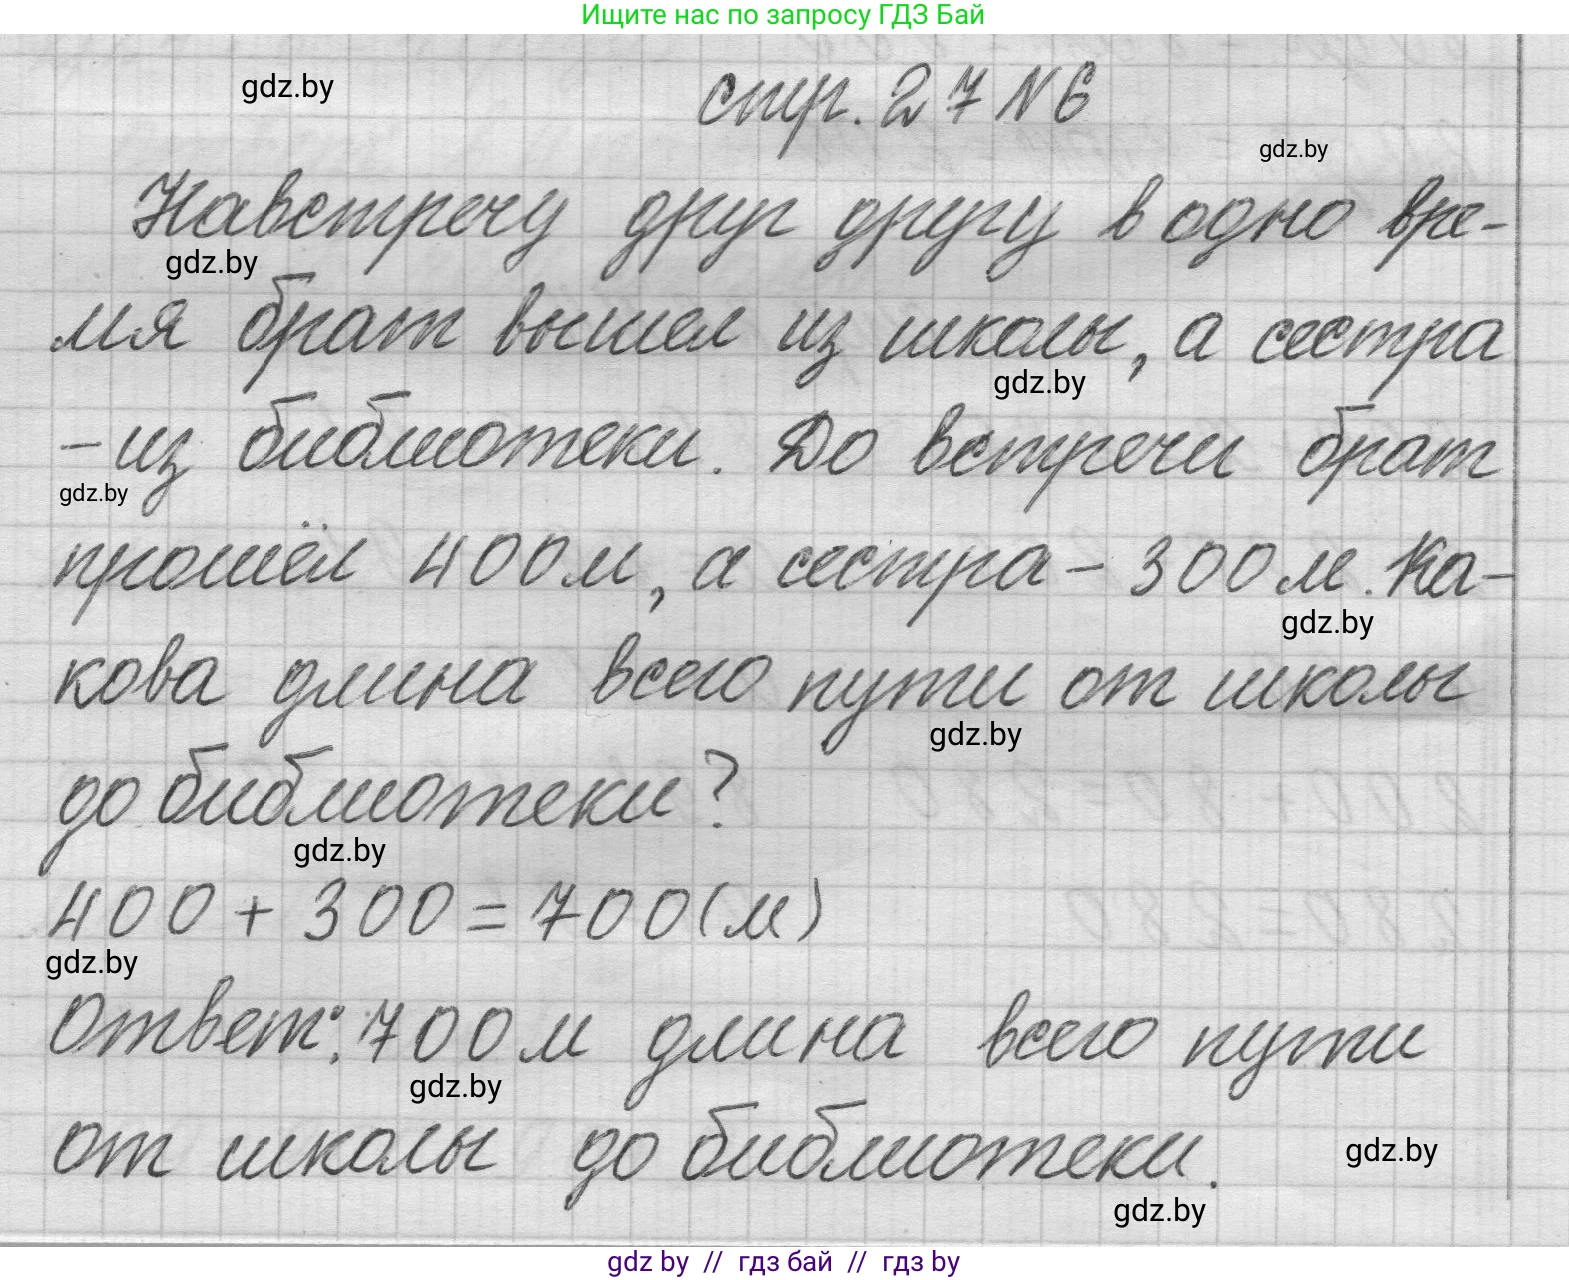 Ищите нас по запросу ГДЗ Бай
gdz.by
стр. 27 N 6
gdz.by
Навстречу друг другу в одно вре-
gdz.by
мя брат вышел из школы, а сестра
gdz.by
- из библиотеки. До встречи брат
gdz.by
прошёл 400 м, а сестра - 300 м. Ка-
gdz.by
кова длина всего пути от школы
gdz.by
до библиотеки?
gdz.by
400 + 300 = 700 (м)
gdz.by
Ответ: 700 м длина всего пути
gdz.by
от школы до библиотеки.
gdz.by
gdz.by
gdz by // гдз бай // гдз by